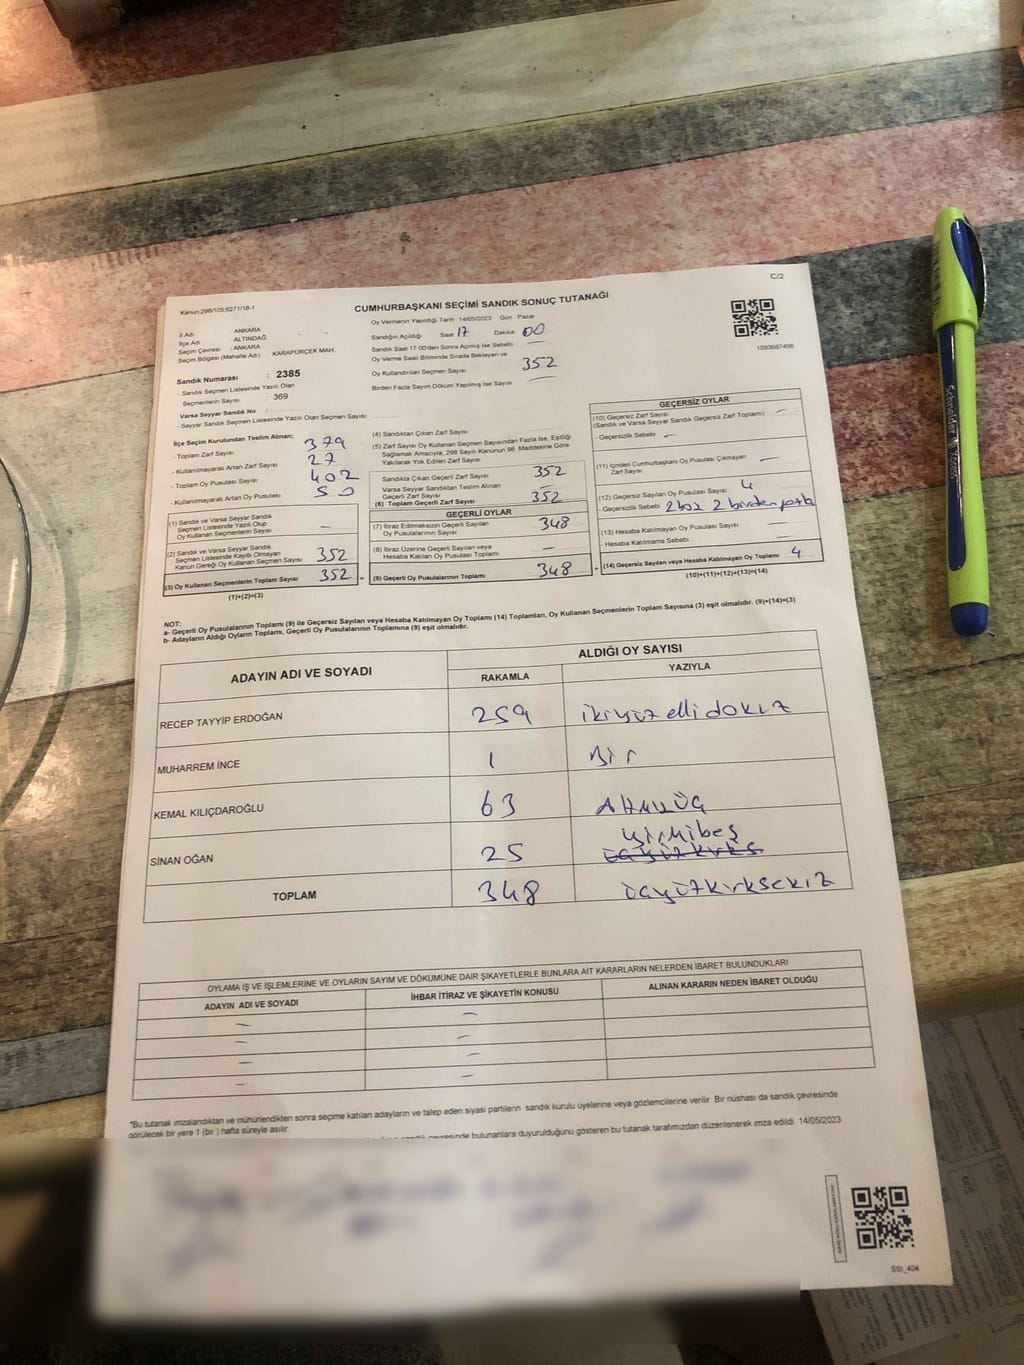 C/2
Kanun:298/105;6271/18-1
CUMHURBAŞKANI SEÇİMİ SANDIK SONUÇ TUTANAĞI
1093687456
İl Adı : ANKARA
İlçe Adı : ALTINDAĞ
Seçim Çevresi : ANKARA
Seçim Bölgesi (Mahalle Adı) : KARAPÜRÇEK MAH.
Oy Vermenin Yapıldığı Tarih 14/05/2023 Gün Pazar
Sandığın Açıldığı Saat 17 Dakika 00
Sandık Saat 17:00'den Sonra Açılmış İse Sebebi —
Oy Verme Saati Bitiminde Sırada Bekleyen ve
Oy Kullandırılan Seçmen Sayısı 352
Birden Fazla Sayım Döküm Yapılmış İse Sayısı —
Sandık Numarası : 2385
- Sandık Seçmen Listesinde Yazılı Olan
Seçmenlerin Sayısı : 369
Varsa Seyyar Sandık No :
- Seyyar Sandık Seçmen Listesinde Yazılı Olan Seçmen Sayısı :
İlçe Seçim Kurulundan Teslim Alınan;
- Toplam Zarf Sayısı 379
- Kullanılmayarak Artan Zarf Sayısı 27
- Toplam Oy Pusulası Sayısı 402
- Kullanılmayarak Artan Oy Pusulası 50
(1) Sandık ve Varsa Seyyar Sandık
Seçmen Listesinde Yazılı Olup
Oy Kullanan Seçmenlerin Sayısı —
(2) Sandık ve Varsa Seyyar Sandık
Seçmen Listesinde Kayıtlı Olmayan
Kanun Gereği Oy Kullanan Seçmen Sayısı 352
(3) Oy Kullanan Seçmenlerin Toplam Sayısı 352
(1)+(2)=(3)
(4) Sandıktan Çıkan Zarf Sayısı
(5) Zarf Sayısı Oy Kullanan Seçmen Sayısından Fazla İse, Eşitliği
Sağlamak Amacıyla; 298 Sayılı Kanunun 98. Maddesine Göre
Yakılarak Yok Edilen Zarf Sayısı
Sandıkta Çıkan Geçerli Zarf Sayısı 352
Varsa Seyyar Sandıktan Teslim Alınan
Geçerli Zarf Sayısı —
(6) Toplam Geçerli Zarf Sayısı 352
GEÇERLİ OYLAR
(7) İtiraz Edilmeksizin Geçerli Sayılan
Oy Pusulasının Sayısı 348
(8) İtiraz Üzerine Geçerli Sayılan veya
Hesaba Katılan Oy Pusulası Toplamı —
(9) Geçerli Oy Pusulalarının Toplamı 348
GEÇERSİZ OYLAR
(10) Geçersiz Zarf Sayısı
(Sandık ve Varsa Seyyar Sandık Geçersiz Zarf Toplamı) —
- Geçersizlik Sebebi —
(11) İçinden Cumhurbaşkanı Oy Pusulası Çıkmayan
Zarf Sayısı —
(12) Geçersiz Sayılan Oy Pusulası Sayısı 4
- Geçersizlik Sebebi 2 boş 2 birden fazla
(13) Hesaba Katılmayan Oy Pusulası Sayısı
- Hesaba Katılmama Sebebi —
(14) Geçersiz Sayılan veya Hesaba Katılmayan Oy Toplamı 4
(10)+(11)+(12)+(13)=(14)
NOT:
a- Geçerli Oy Pusulalarının Toplamı (9) ile Geçersiz Sayılan veya Hesaba Katılmayan Oy Toplamı (14) Toplamları, Oy Kullanan Seçmenlerin Toplam Sayısına (3) eşit olmalıdır. (9)+(14)=(3)
b- Adayların Aldığı Oyların Toplamı, Geçerli Oy Pusulalarının Toplamına (9) eşit olmalıdır.
ADAYIN ADI VE SOYADI ALDIĞI OY SAYISI
RAKAMLA YAZIYLA
RECEP TAYYİP ERDOĞAN 259 ikiyüzellidokuz
MUHARREM İNCE 1 Bir
KEMAL KILIÇDAROĞLU 63 Altmışüç
SİNAN OĞAN 25 yirmibeş
TOPLAM 348 üçyüzkırksekiz
OYLAMA İŞ VE İŞLEMLERİNE VE OYLARIN SAYIM VE DÖKÜMÜNE DAİR ŞİKAYETLERLE BUNLARA AİT KARARLARIN NELERDEN İBARET BULUNDUKLARI
ADAYIN ADI VE SOYADI İHBAR İTİRAZ VE ŞİKAYETİN KONUSU ALINAN KARARIN NEDEN İBARET OLDUĞU
— —
— —
— —
— —
*Bu tutanak imzalandıktan ve mühürlendikten sonra seçime katılan adayların ve talep eden siyasi partilerin sandık kurulu üyelerine veya gözlemcilerine verilir. Bir nüshası da sandık çevresinde
görülecek bir yere 1 (bir) hafta süreyle asılır.
sandık çevresinde bulunanlara duyurulduğunu gösteren bu tutanak tarafımızdan düzenlenerek imza edildi. 14/05/2023
SSt_404
Schneider